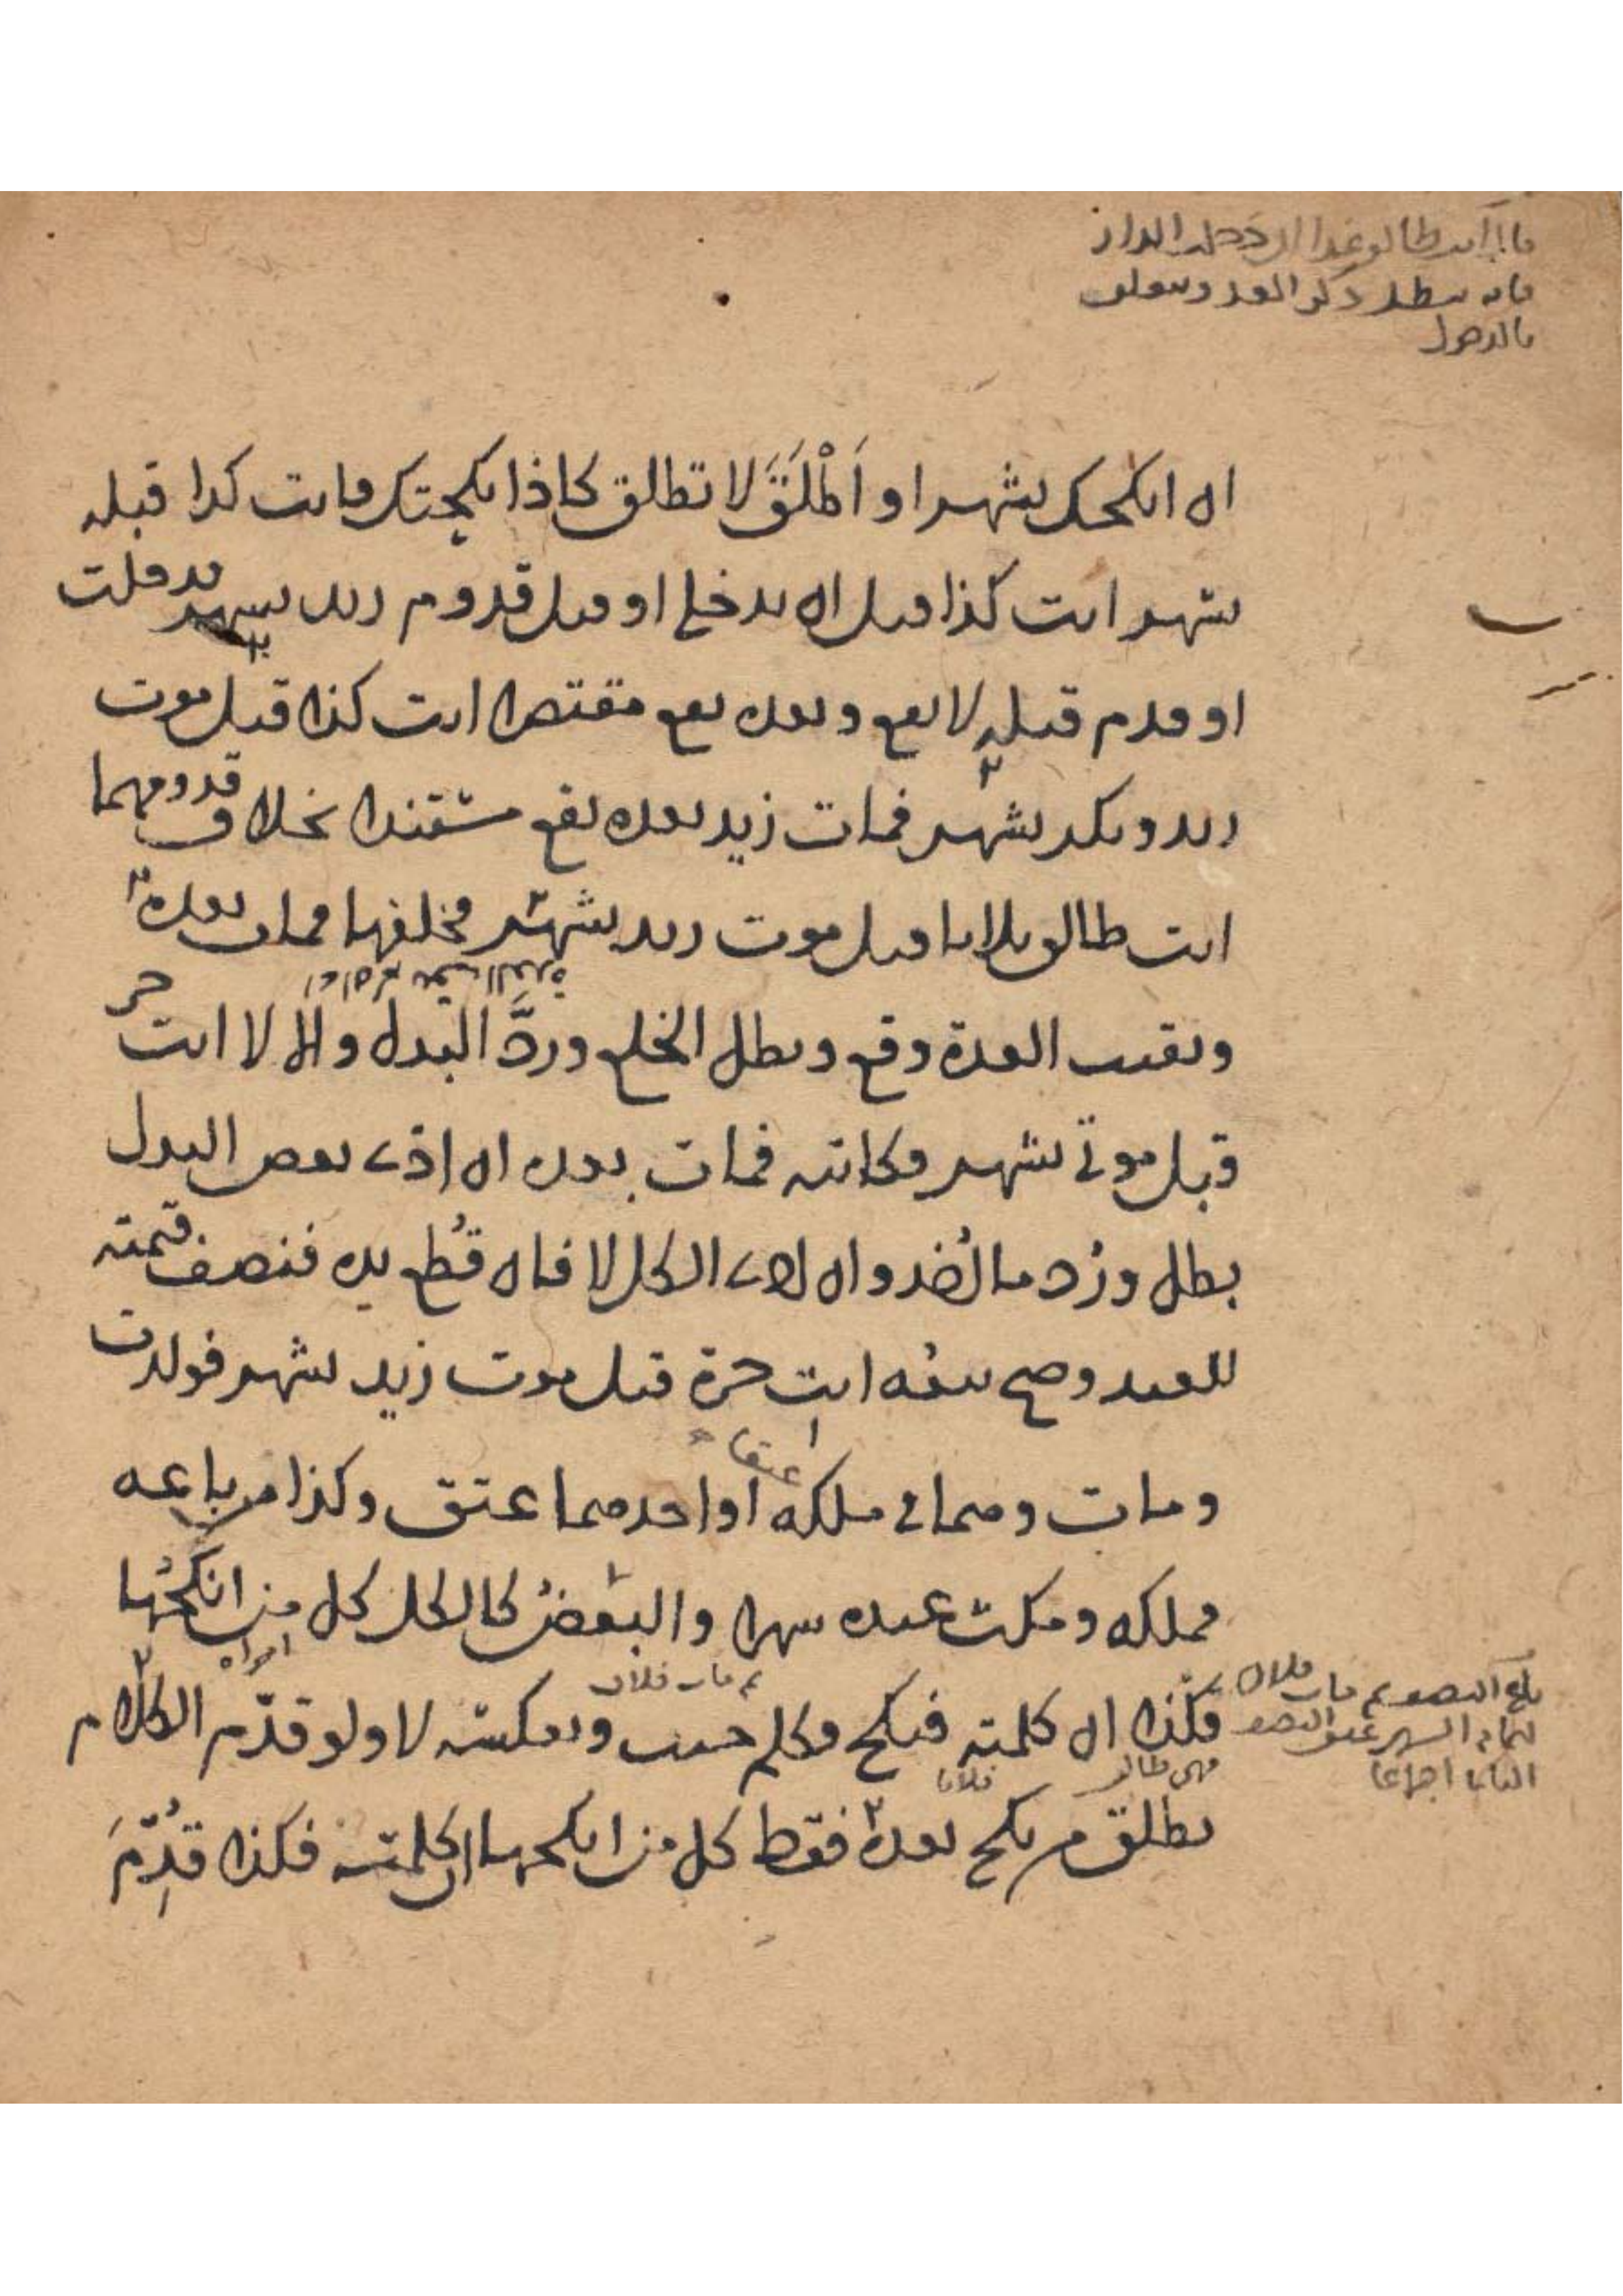 قال انت طالق غدا ان دخلت الدار
فانه يبطل ذكر الغد ويتعلق
بالدخول
ان انكحك بشهر او اَطْلَقَ لا تطلق كاذا نكحتك فانت كذا قبله
بشهر انت كذا قبل ان تدخلي او قبل قدوم زيد بشهر فدخلت
او قدم قبله لا يقع وبعده يقع مقتصرا انت كذا قبل موت
زيد وبكر بشهر فمات زيد بعده يقع مستندا بخلاف قدومهما
انت طالق ثلاثا قبل موت زيد بشهر فخلعها فمات بعده
وبقيت العدة وقع وبطل الخلع وردَّ البدل والا لا انت حر
قبل موتي بشهر وكاتبه فمات بعده ان ادى بعض البدل
بطل ورُد ما اُخذ وان ادى الكل لا فان قُطع يده فنصف قيمته
للعبد وصح بيعه انت حرة قبل موت زيد بشهر فولدت
ومات وهما في ملكه او احدهما عتق وكذا من باعه
فملكه ومكث عنده شهرا والبعضُ كالكل كل من انكحُها
فكذا ان كلمته فنكح وكلم حنث وبعكسه لا ولو قدّم الكلام
ثم مات فلان
فهي طالق
فلانا
تطلق من نكح بعده فقط كل من انكحها ان كلمته فكذا قُدِّمَ